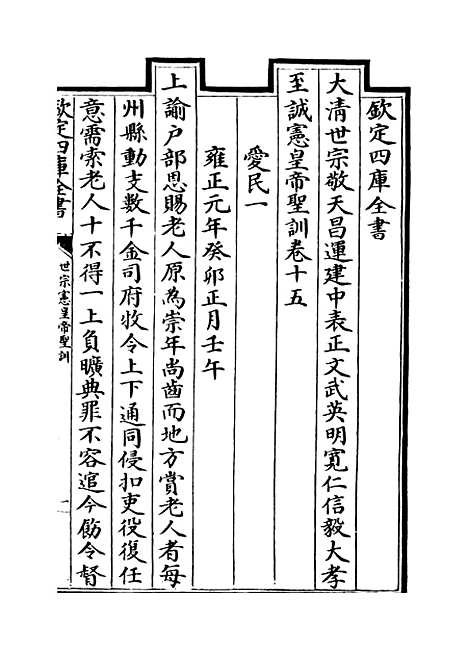 欽定四庫全書
大清世宗敬天昌運建中表正文武英明寛仁信毅大孝
至誠憲皇帝聖訓卷十五
愛民一
雍正元年癸卯正月壬午
上諭户部恩賜老人原為崇年尚齒而地方賞老人者每
州縣動支數千金司府牧令上下通同侵扣吏役復任
意需索老人十不得一上負曠典罪不容逭今飭令督
欽定四庫全書
世宗憲皇帝聖訓
一